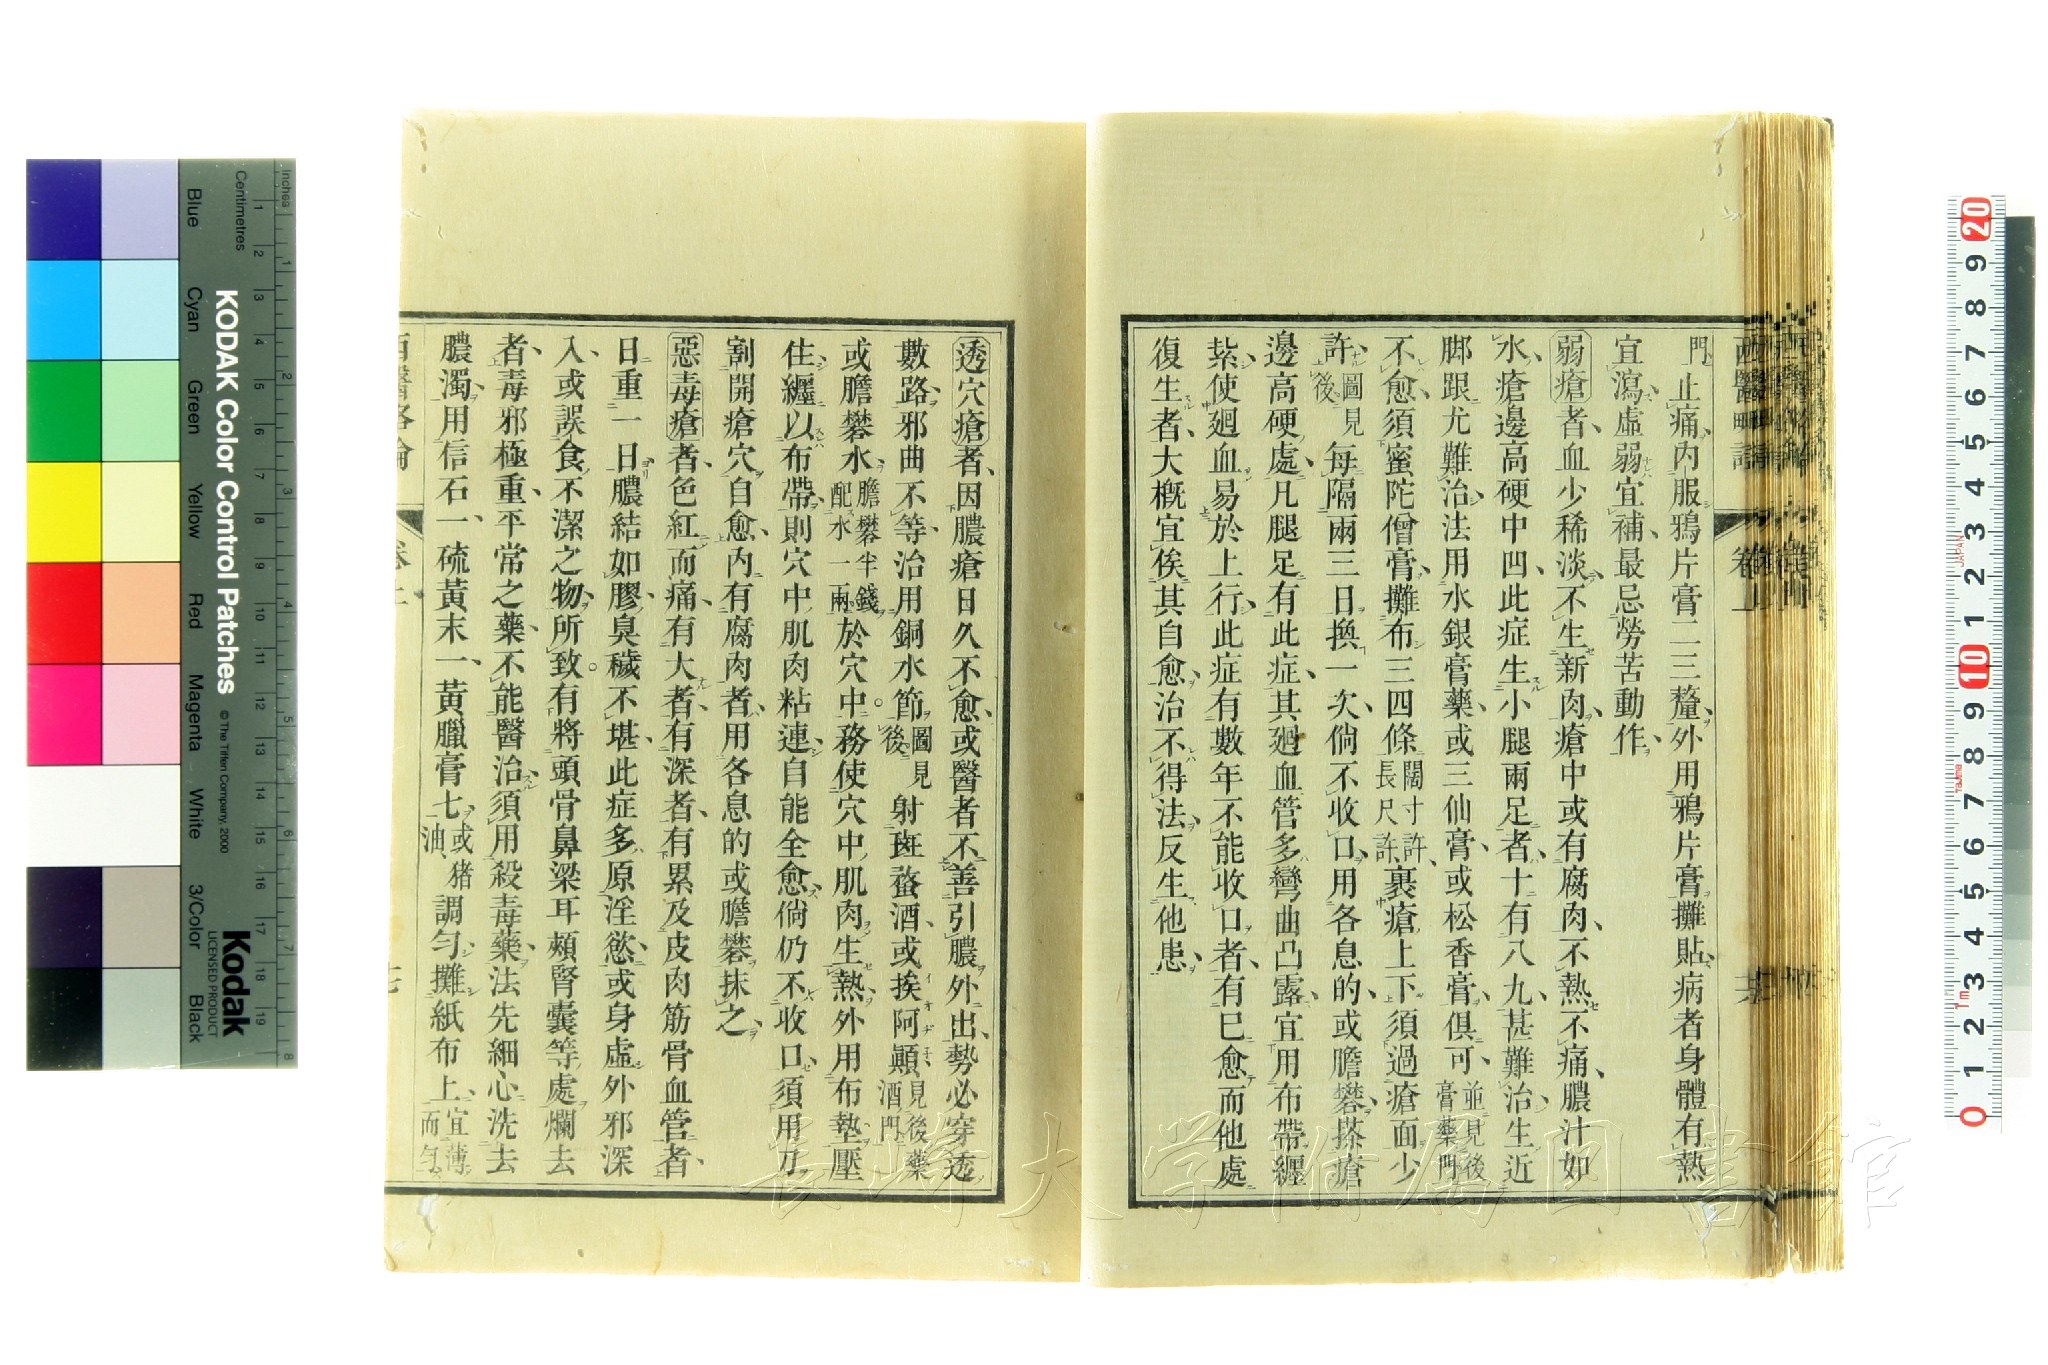 門止痛、內服鴉片膏二三釐、外用鴉片膏攤貼、病者身體有熱
宜瀉、虛弱宜補、最忌勞苦動作、
弱瘡者、血少稀淡、不生新肉、瘡中或有腐肉、不熱不痛、膿汁如
水、瘡邊高硬中凹、此症生小腿兩足者、十有八九、甚難治、生近
脚跟尤難治、法用水銀膏藥、或三仙膏、或松香膏、俱可、並見後膏藥門
不愈、須蜜陀僧膏、攤布三四條、闊寸許、長尺許、裹瘡上下、須過瘡面少
許、圖見後每隔兩三日、換一次、倘不收口、用各息的、或膽礬、搽瘡
邊高硬處、凡腿足有此症、其廻血管多彎曲凸露、宜用布帶纏
紥、使廻血易於上行、此症有數年不能收口者、有巳愈而他處
復生者、大概宜俟其自愈、治不得法、反生他患、
透穴瘡者、因膿瘡日久不愈、或醫者不善引膿外出、勢必穿透
數路、邪曲不等、治用銅水節圖見後射斑蝥酒、或挨阿顚酒見後藥酒門
或膽礬水膽礬半錢配水一兩於穴中。務使穴中肌肉生熱、外用布墊壓
住、纏以布帶、則穴中肌肉粘連、自能全愈、倘仍不收口、須用刀
割開瘡穴自愈、內有腐肉者、用各息的或膽礬抹之、
惡毒瘡者、色紅而痛、有大者、有深者、有累及皮肉筋骨血管者、
日重一日、膿結如膠、臭穢不堪、此症多原淫慾、或身虛外邪深
入、或誤食不潔之物所致。有將頭骨鼻梁耳頰腎囊等處爛去
者、毒邪極重、平常之藥、不能醫治、須用殺毒藥、法先細心洗去
膿濁、用信石一、硫黃末一、黃臘膏七、或猪油、調勻、攤紙布上、宜薄而勻
西醫略論
卷上
七
西醫略論
卷上
長崎大学附属図書館
KODAK Color Control Patches
© The Tiffen Company, 2000
Kodak
LICENSED PRODUCT
Centimetres
Inches
Blue
Cyan
Green
Yellow
Red
Magenta
White
3/Color
Black